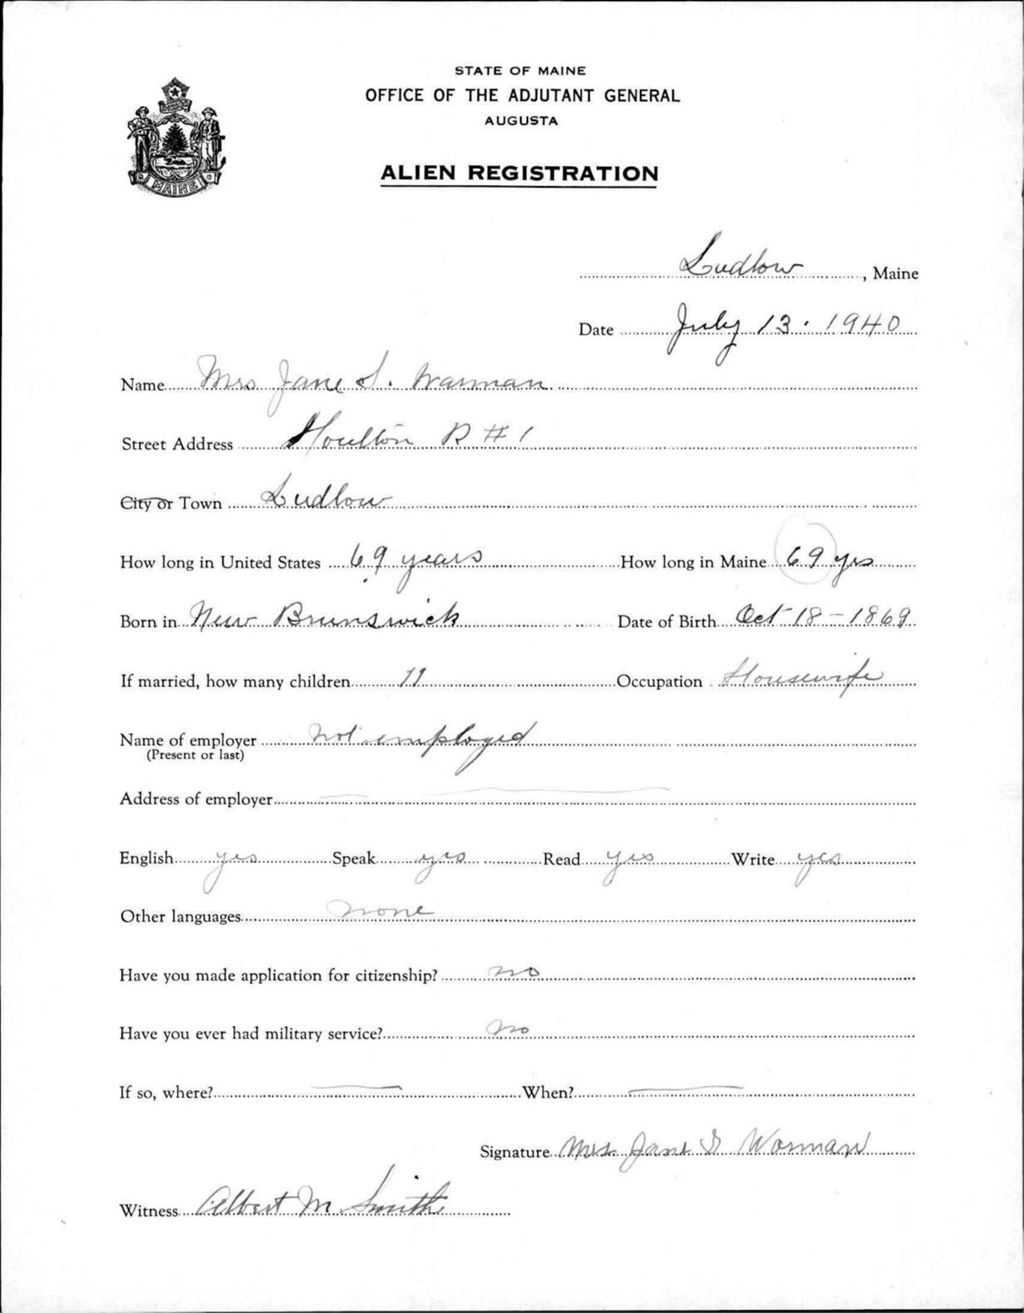 STATE OF MAINE
OFFICE OF THE ADJUTANT GENERAL
AUGUSTA
ALIEN REGISTRATION
MAINE
Ludlow, Maine
Date July 13. 1940
Name Mrs Jane S. Warman
Street Address Houlton R # 1
City or Town Ludlow
How long in United States 69 years How long in Maine 69 yrs
Born in New Brunswick Date of Birth Oct 18-1869
If married, how many children 11 Occupation Housewife
Name of employer not employed
(Present or last)
Address of employer
English yes Speak yes Read yes Write yes
Other languages none
Have you made application for citizenship? no
Have you ever had military service? no
If so, where? When?
Signature Mrs Jane S Worman
Witness Albert M. Smith